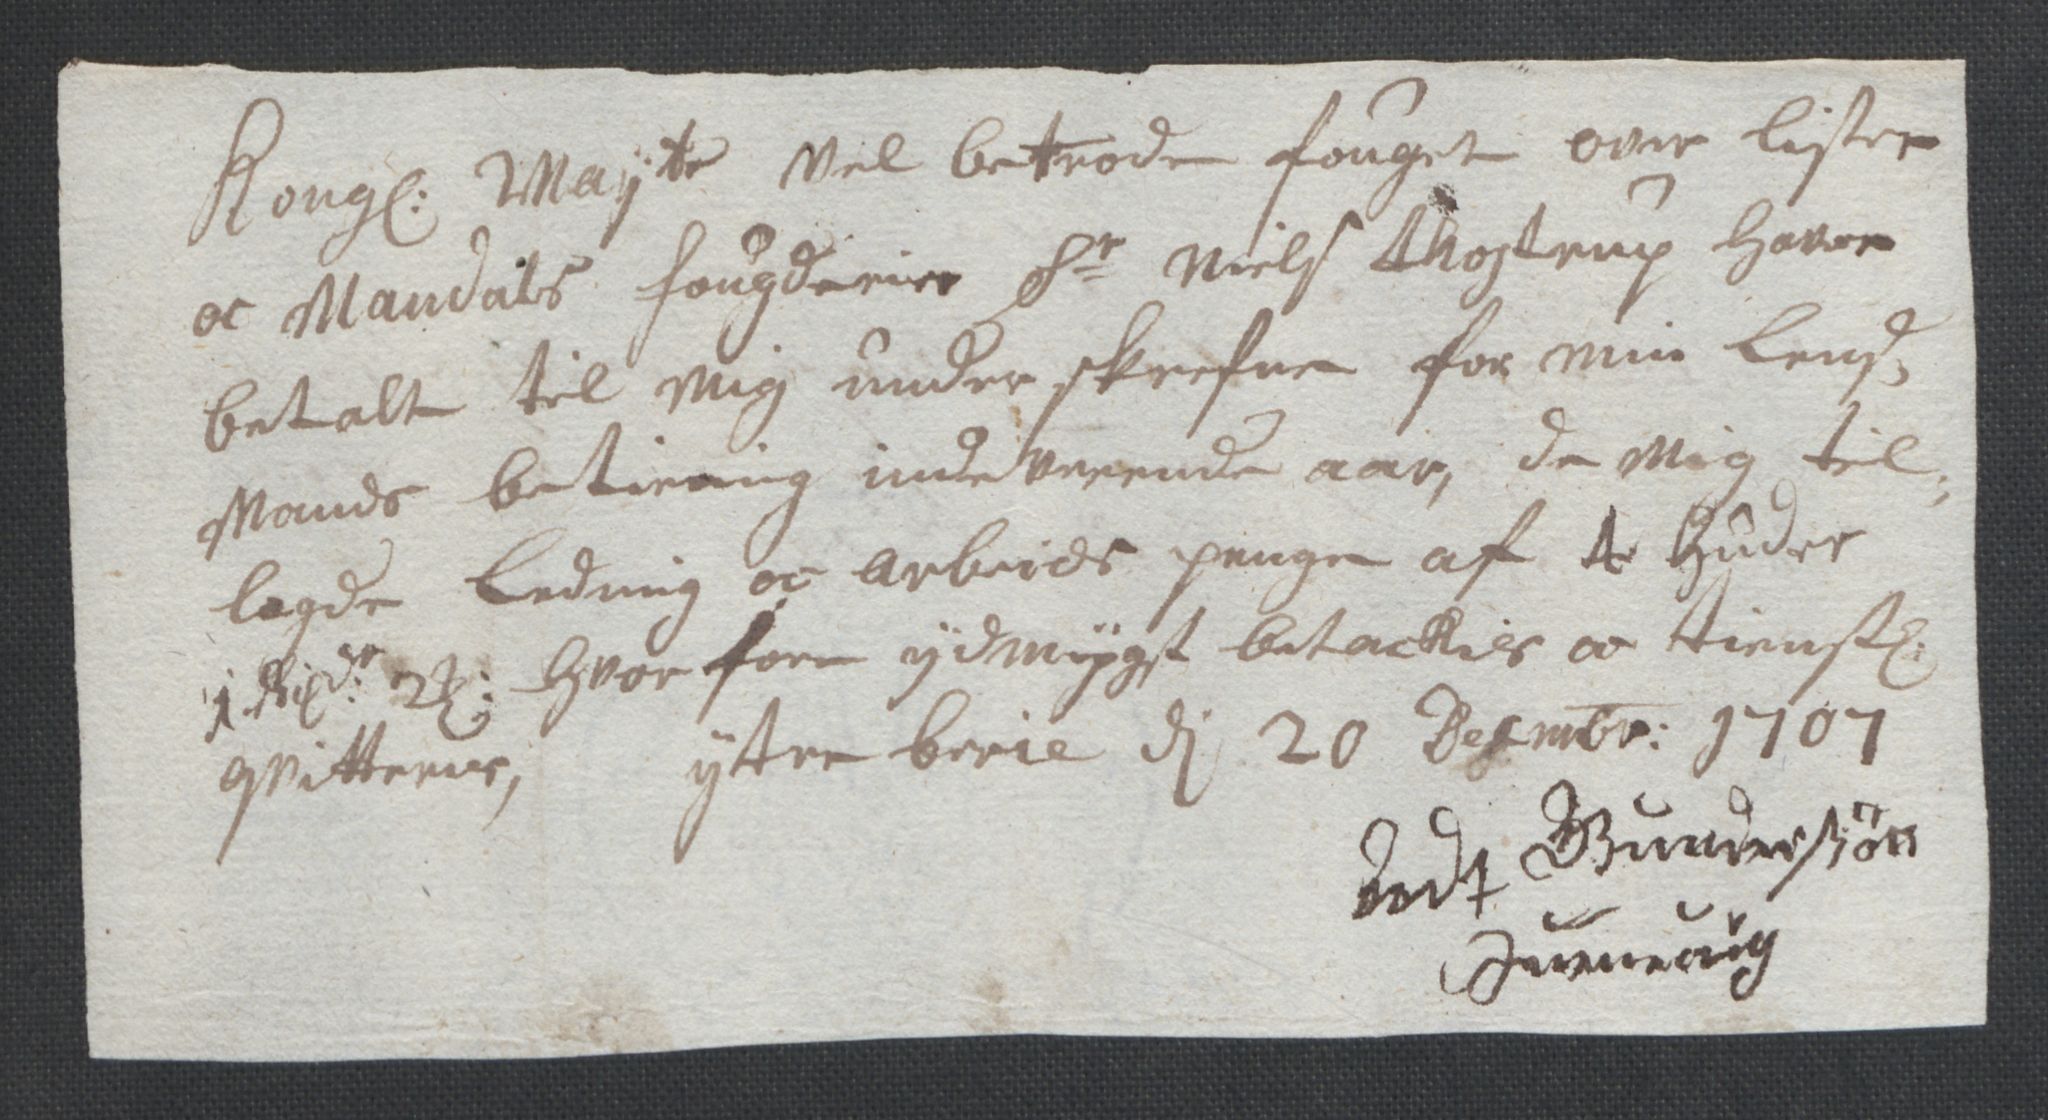 Kongl: Mayts vel betrode fouget over Lister
oc Mandals fougderier Sr Niels Thostrup haver
betalt til mig under skrefne for min Lens,
Mands betiening indeverende aar, de mig til,
lagde Ledning oc arbeids penge af 4 huder
1 Rixdr 2 : hvor fore ÿdmÿgst betackis oc tienstl:
qvitterer, ÿttre berie dj 20 Desembr: 1707
Gunderssön